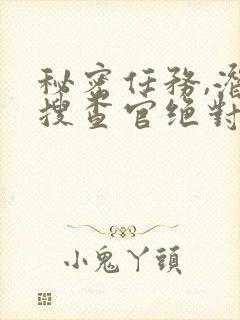 秘密任務,潛
搜查官绝對
小鬼丫頭